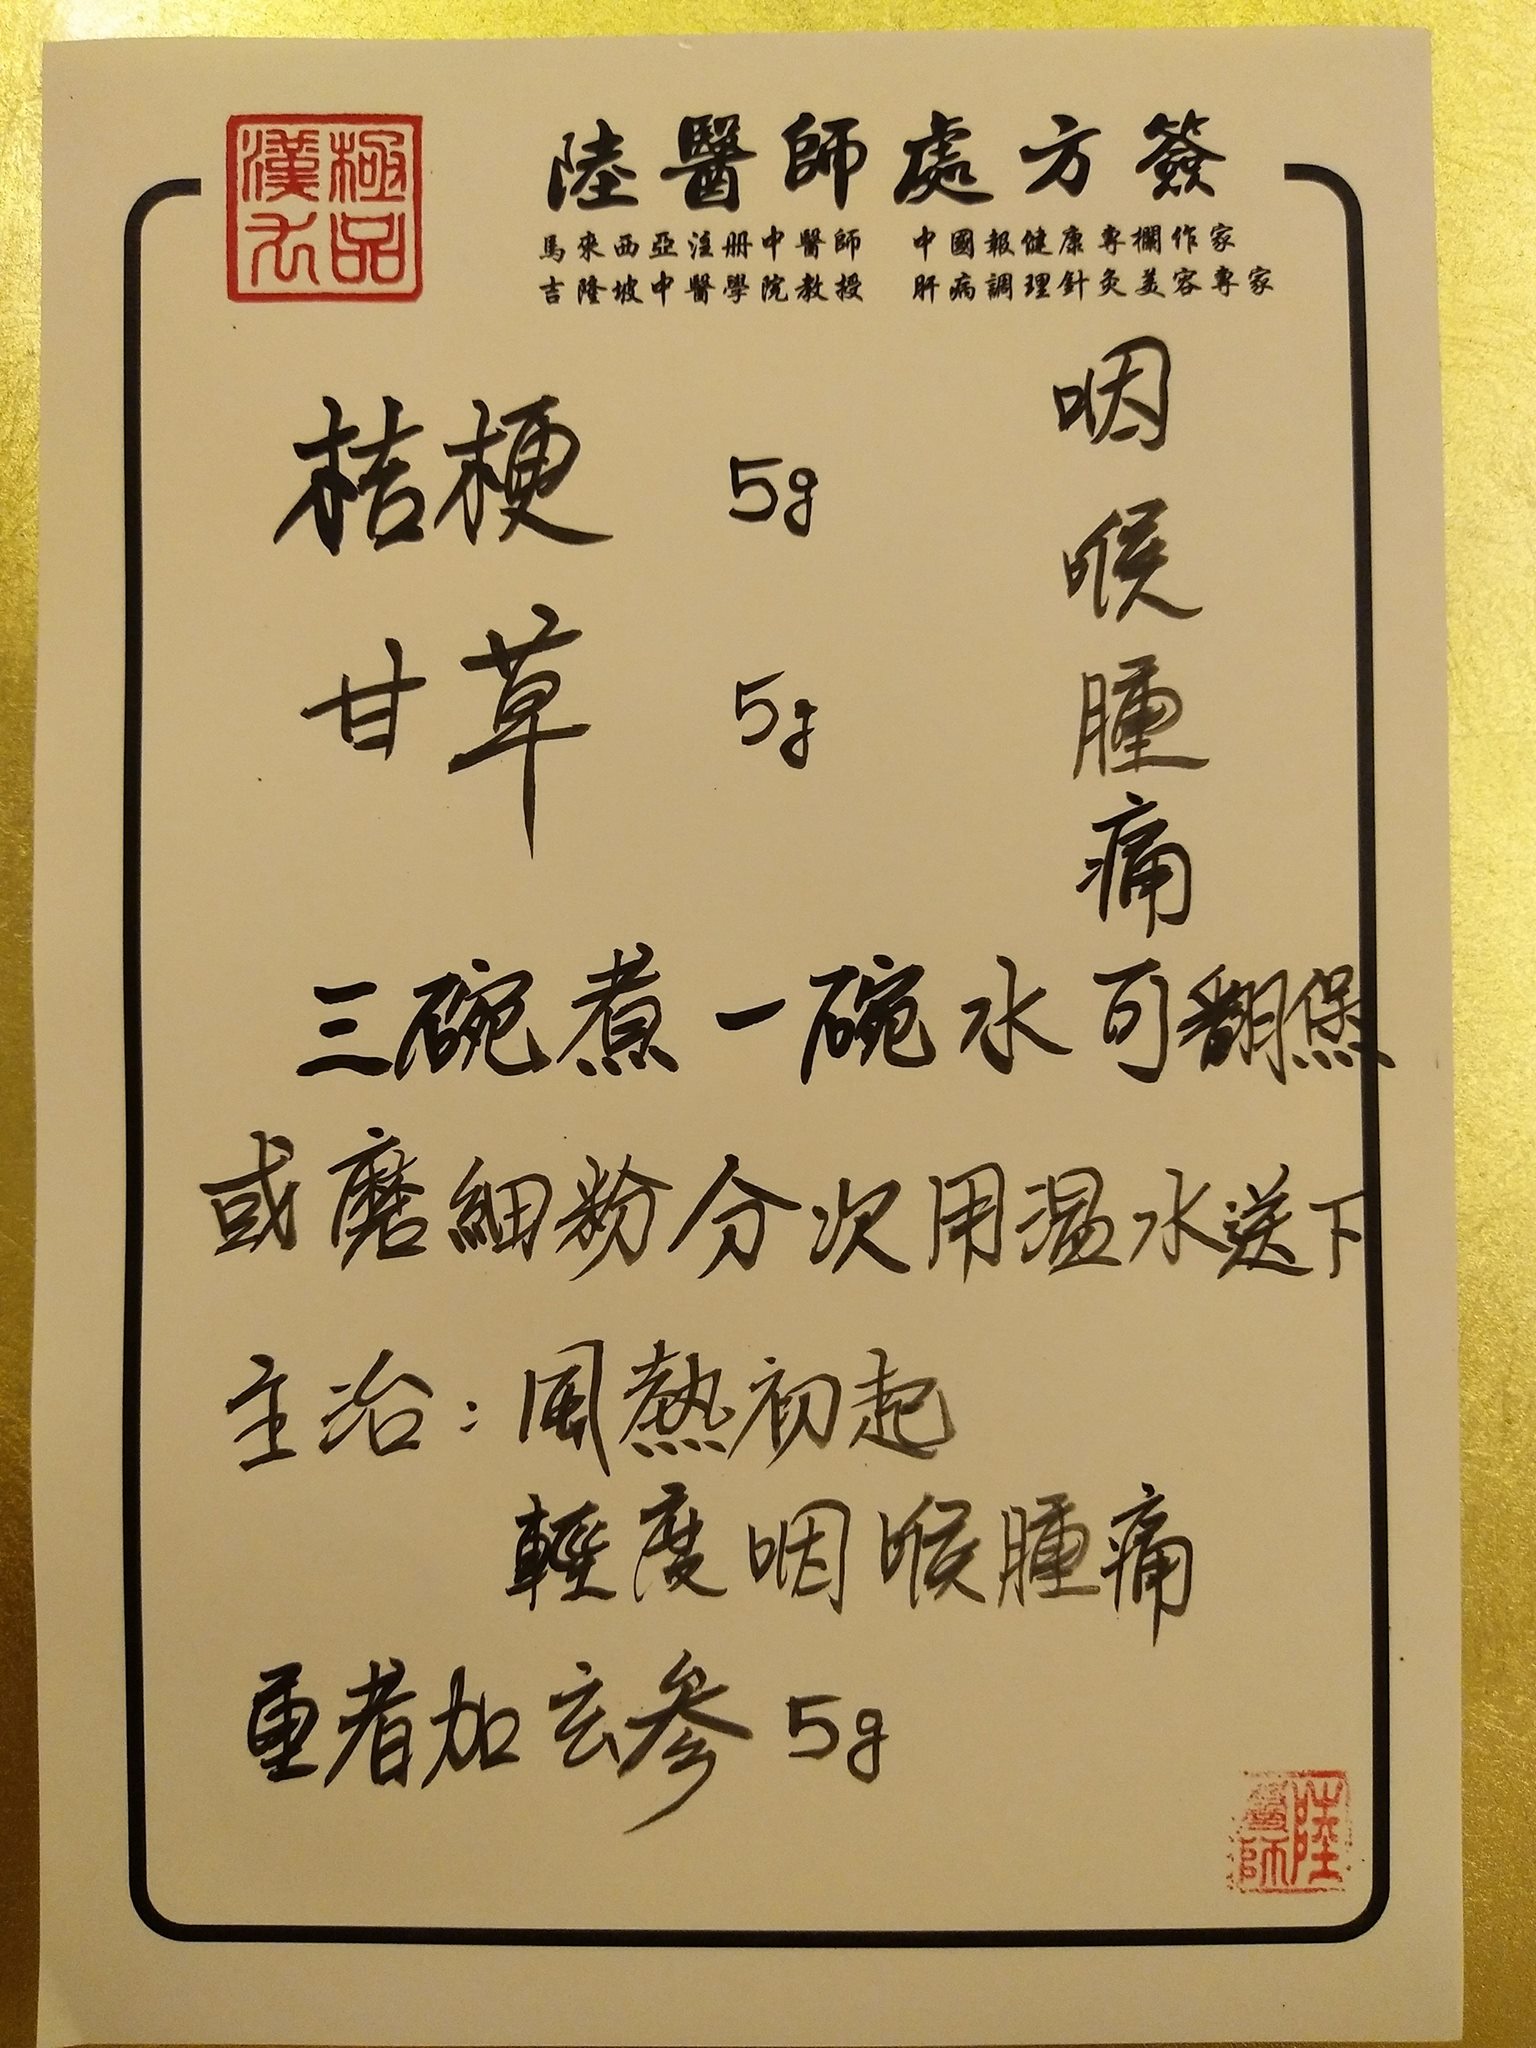 極品漢方
陸醫師處方簽
馬來西亞注册中醫師 中國報健康專欄作家
吉隆坡中醫學院教授 肝病調理針灸美容專家
咽喉腫痛
桔梗 5g
甘草 5g
三碗煮一碗水可翻煲
或磨細粉分次用溫水送下
主治：風熱初起
輕度咽喉腫痛
重者加玄參 5g
陸醫師